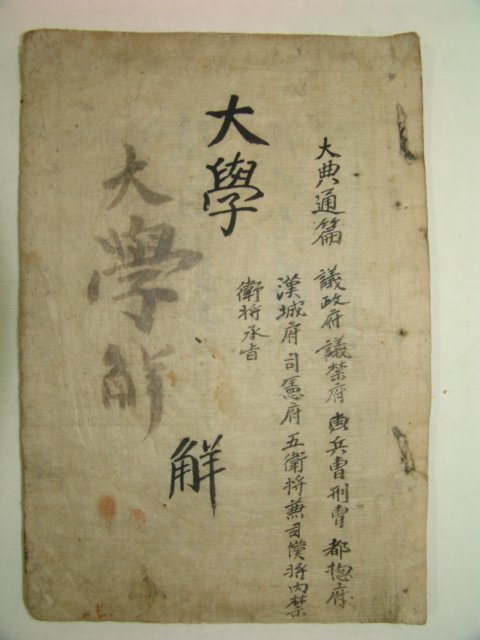 大典通篇 議政府 議禁府 兵曹刑曹 都摠府
漢城府 司憲府 五衛將兼司僕將內禁
衛將承旨
大學
解
大學解